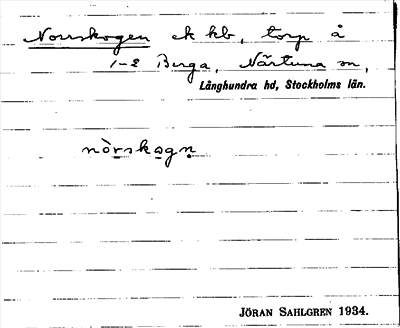 Norrskogen ek kb, torp å
1-2 Berga, Närtuna sn,
Långhundra hd, Stockholms län.
nòrskogn
JÖRAN SAHLGREN 1934.